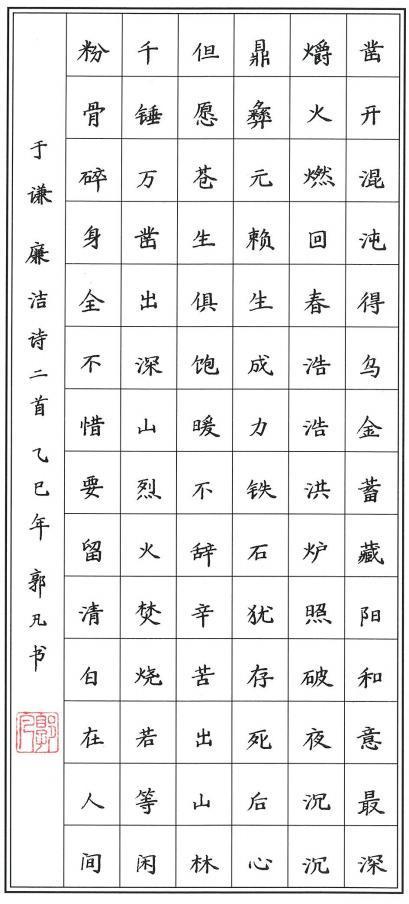 凿开混沌得乌金蓄藏阳和意最深
爝火燃回春浩浩洪炉照破夜沉沉
鼎彝元赖生成力铁石犹存死后心
但愿苍生俱饱暖不辞辛苦出山林
千锤万凿出深山烈火焚烧若等闲
粉骨碎身全不惜要留清白在人间
于谦 廉洁诗二首 乙巳年 郭凡书
郭凡